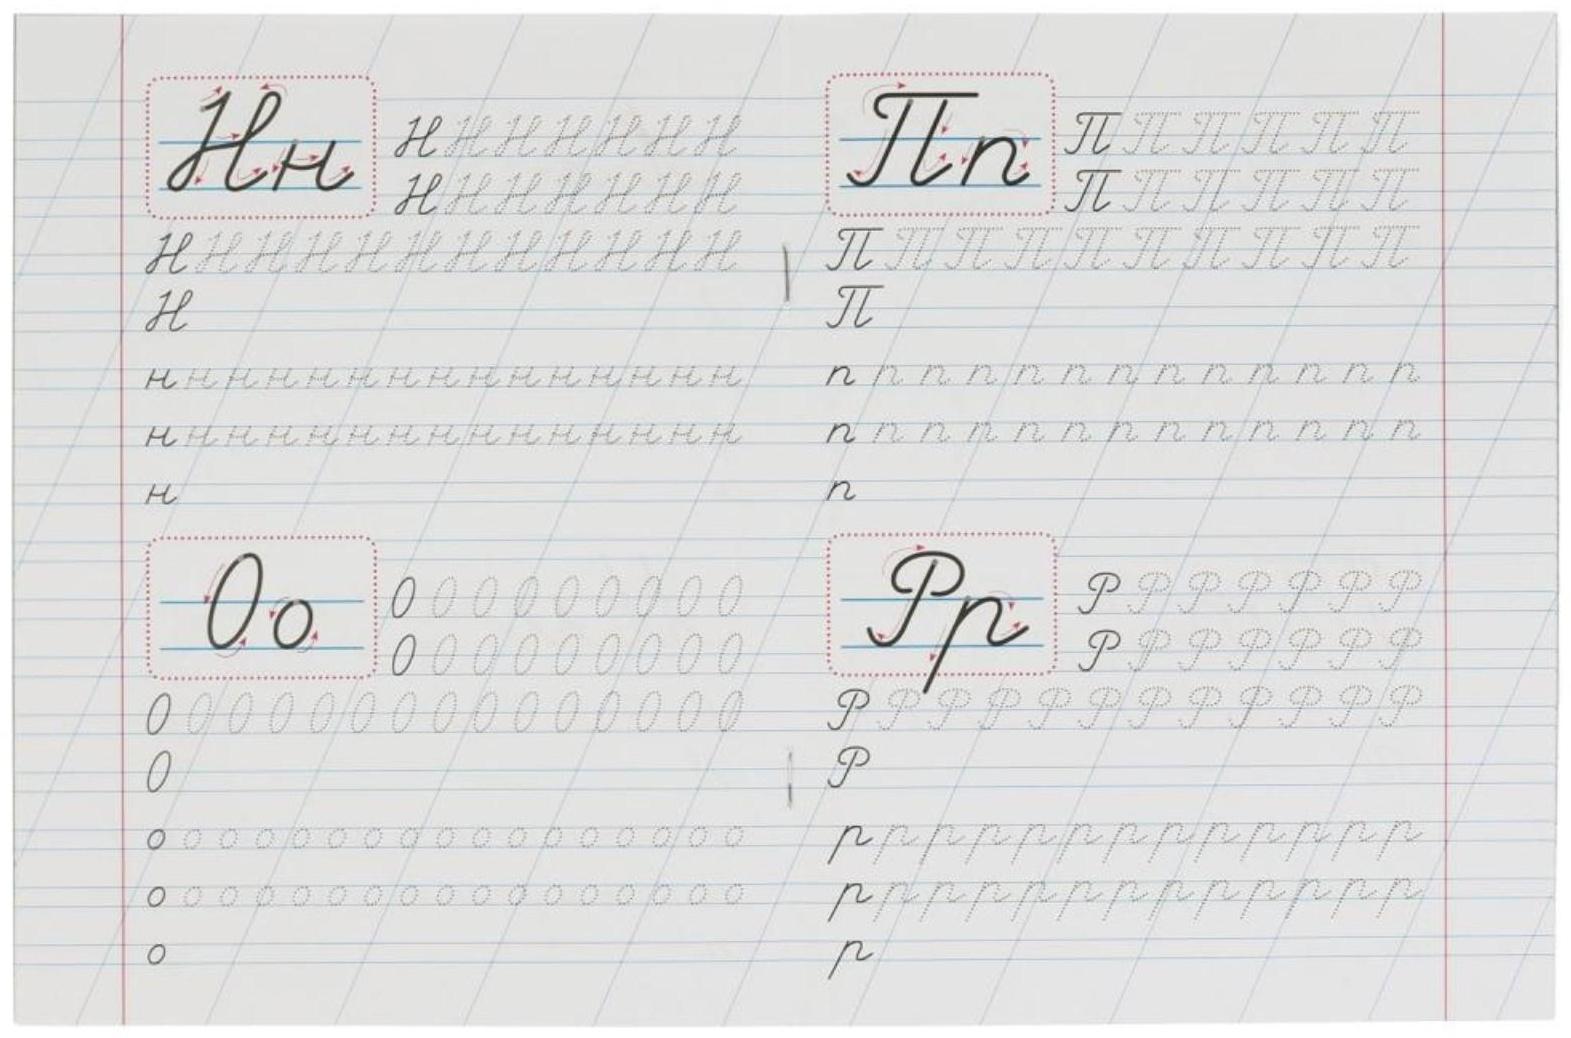 Нн
Н Н Н Н Н Н Н
Н Н Н Н Н Н Н
Н Н Н Н Н Н Н Н Н Н Н Н
Н
н н н н н н н н н н н н н н н
н н н н н н н н н н н н н н н
н
Оо
О О О О О О О О О
О О О О О О О О О
О О О О О О О О О О О О О О О
О
о о о о о о о о о о о о о о о о о
о о о о о о о о о о о о о о о о о
о
Пп
П П П П П П
П П П П П П
П П П П П П П П П П
П
п п п п п п п п п п п п п
п п п п п п п п п п п п п
п
Рр
Р Р Р Р Р Р Р
Р Р Р Р Р Р Р
Р Р Р Р Р Р Р Р Р Р Р Р
Р
р р р р р р р р р р р р р
р р р р р р р р р р р р р
р